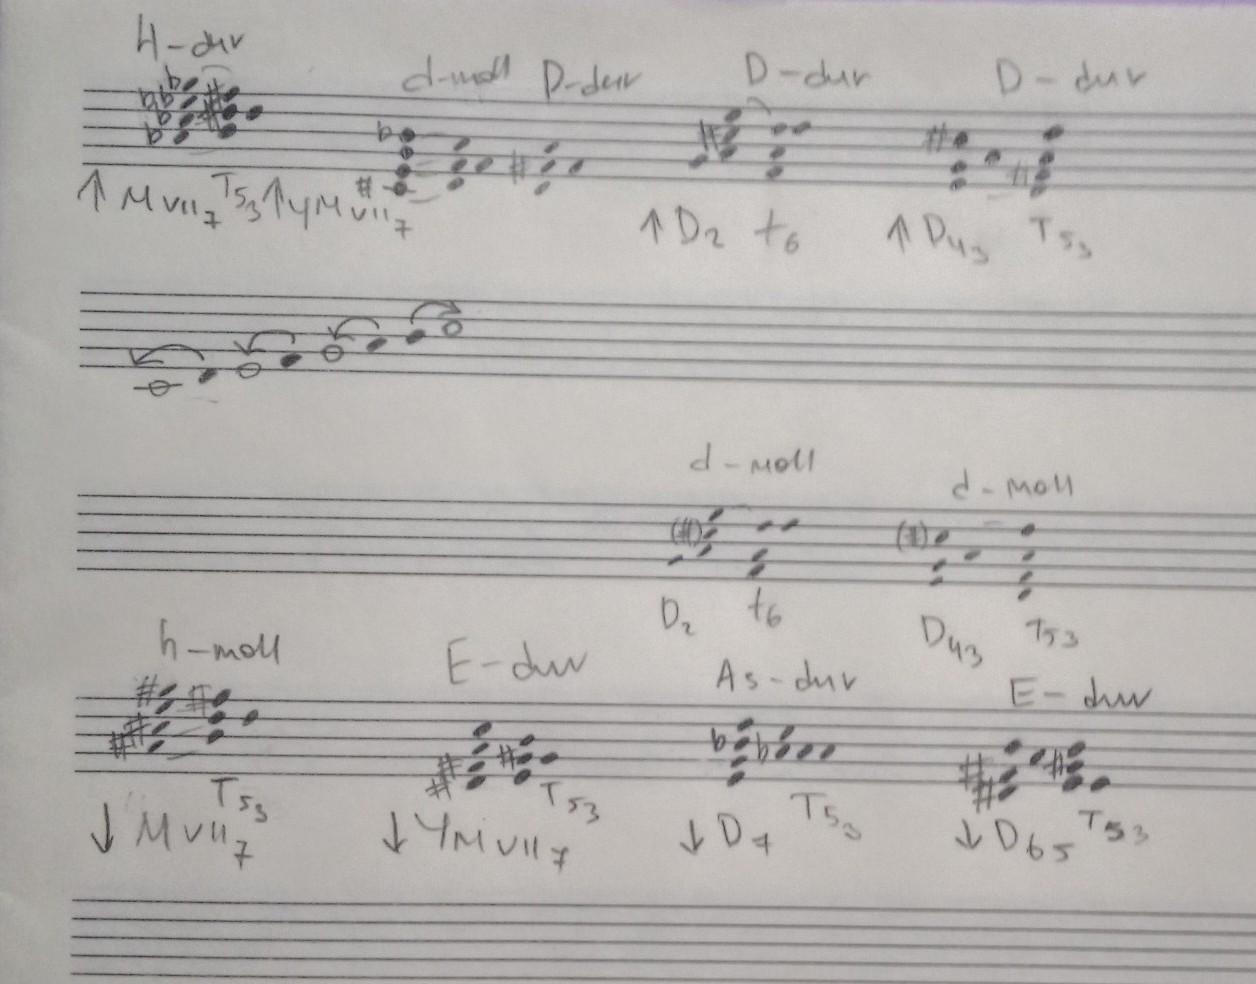 H-dur
d-moll D-dur
D-dur
D-dur
↑ MVII7 T53 ↑ УMVII7
↑ D2 t6
↑ D43 T53
d-moll
d-moll
D2 t6
D43 T53
h-moll
E-dur
As-dur
E-dur
↓ MVII7 T53
↓ УMVII7 T53
↓ D7 T53
↓ D65 T53